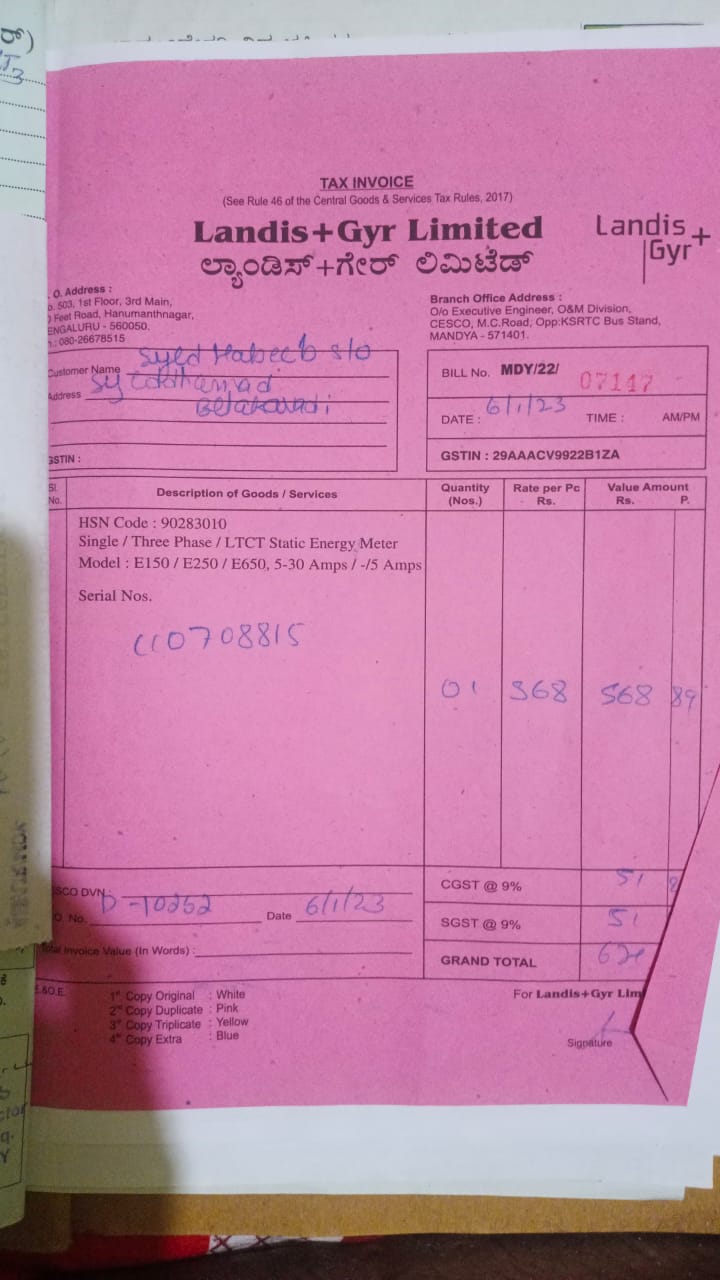 TAX INVOICE
(See Rule 46 of the Central Goods & Services Tax Rules, 2017)
Landis+Gyr Limited
ಲ್ಯಾಂಡಿಸ್+ಗೇರ್ ಲಿಮಿಟೆಡ್
Landis+
Gyr
O. Address :
503, 1st Floor, 3rd Main,
Feet Road, Hanumanthnagar,
ENGALURU - 560050.
080-26678515
Branch Office Address :
O/o Executive Engineer, O&M Division,
CESCO, M.C.Road, Opp:KSRTC Bus Stand,
MANDYA - 571401.
Customer Name Syed Habeeb s/o
Address
GSTIN :
BILL No. MDY/22/ 07147
DATE : 6/1/23 TIME : AM/PM
GSTIN : 29AAACV9922B1ZA
Sl. No. Description of Goods / Services Quantity (Nos.) Rate per Pc Rs. Value Amount Rs. P.
HSN Code : 90283010
Single / Three Phase / LTCT Static Energy Meter
Model : E150 / E250 / E650, 5-30 Amps / -/5 Amps
Serial Nos.
110708815
01 568 568 89
SCO DVN: CGST @ 9% 51
O. No. D-10252 Date 6/1/23 SGST @ 9% 51
Total Invoice Value (In Words) : GRAND TOTAL
E.&O.E.
1st Copy Original : White
2nd Copy Duplicate : Pink
3rd Copy Triplicate : Yellow
4th Copy Extra : Blue
For Landis+Gyr Lim
Signature